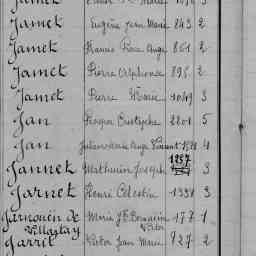 Jamet
Jamet Eugène Jean Marie 243 2
Jamet Francis Rose Ange 861 2
Jamet Pierre Alphonse 895 2
Jamet Pierre Marie 1049 3
Jan Prosper Eustache 2201 5
Jan Ange Vincent 4
Jannet Mathurin Joseph 1287 3
Jarnet Henri Célestin 3
Jarnouën de Villartay Marie Jh Donatien Victor 177 1
Jarrit Victor Jean Marie 727 2